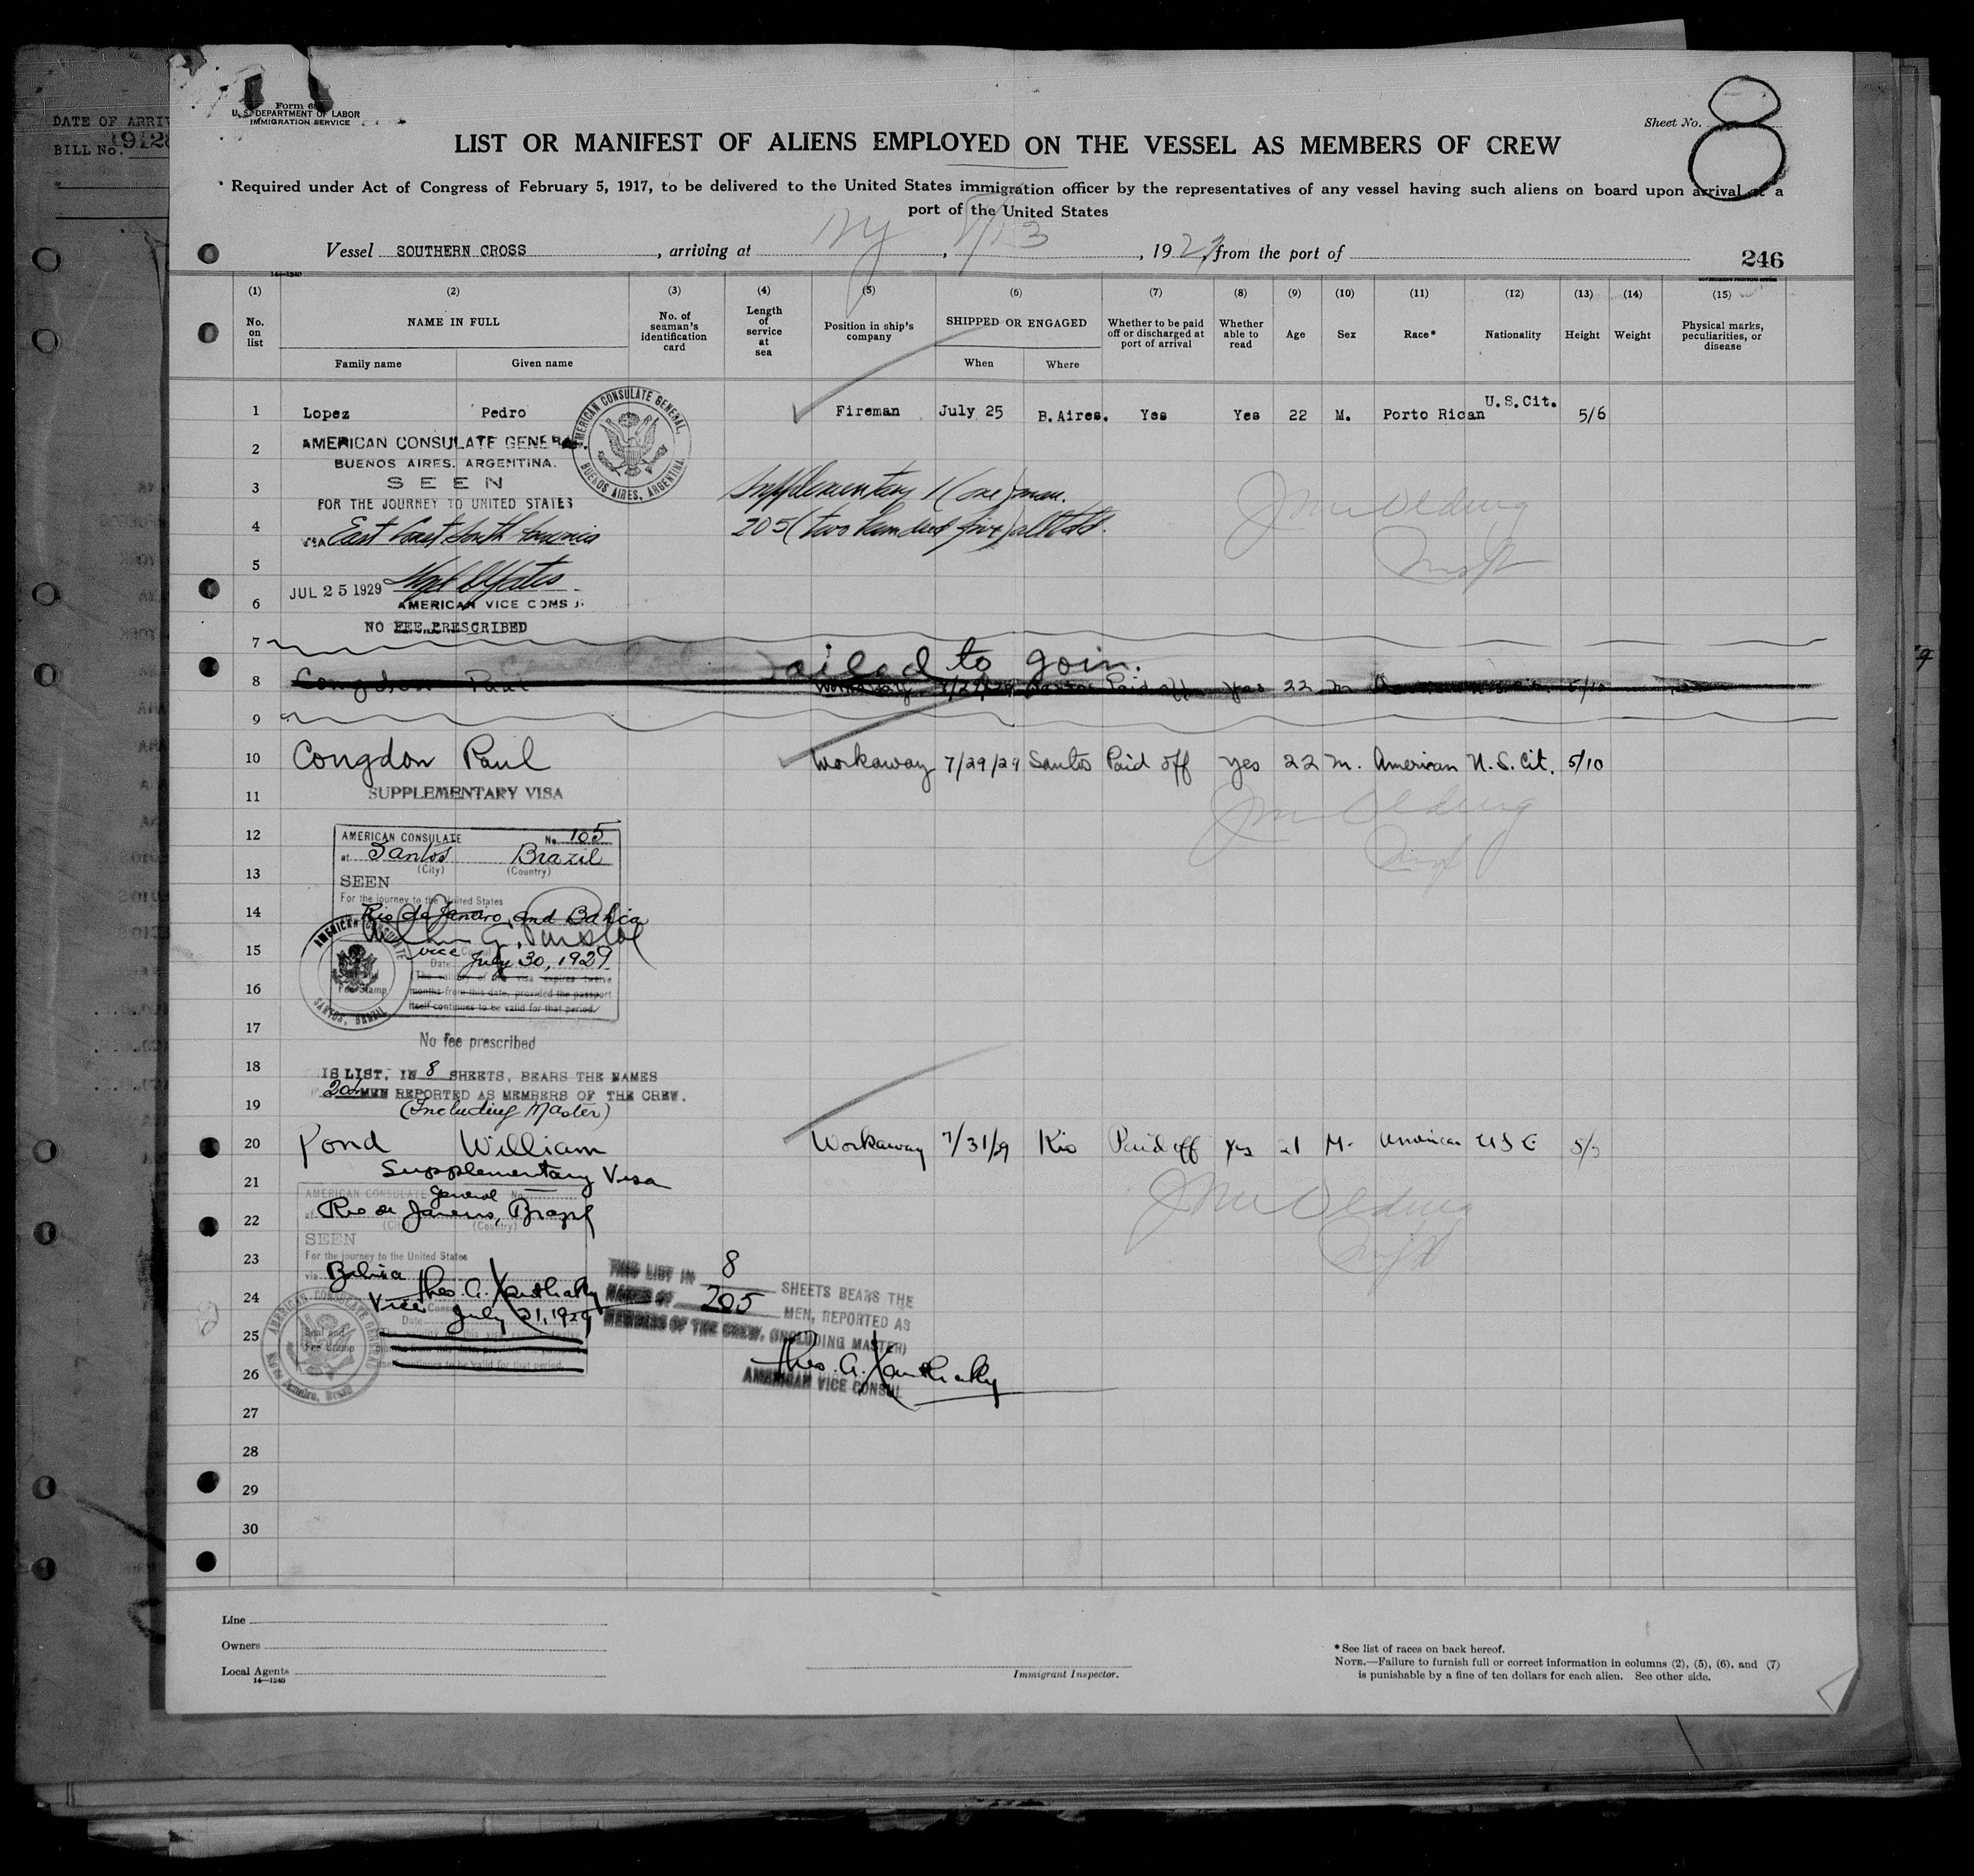 DATE OF ARRIV
BILL No.
Form 6
U. S. DEPARTMENT OF LABOR
IMMIGRATION SERVICE
Sheet No. 8
LIST OR MANIFEST OF ALIENS EMPLOYED ON THE VESSEL AS MEMBERS OF CREW
Required under Act of Congress of February 5, 1917, to be delivered to the United States immigration officer by the representatives of any vessel having such aliens on board upon arrival at a
port of the United States
Vessel SOUTHERN CROSS, arriving at NY, 8/13, 1929, from the port of
246
14-1240
(1) (2) (3) (4) (5) (6) (7) (8) (9) (10) (11) (12) (13) (14) (15)
No. on list
NAME IN FULL
Family name Given name
No. of seaman's identification card
Length of service at sea
Position in ship's company
SHIPPED OR ENGAGED
When Where
Whether to be paid off or discharged at port of arrival
Whether able to read
Age
Sex
Race*
Nationality
Height
Weight
Physical marks, peculiarities, or disease
1 Lopez Pedro Fireman July 25 B. Aires. Yes Yes 22 M. Porto Rican U.S.Cit. 5/6
AMERICAN CONSULATE GENERAL, BUENOS AIRES, ARGENTINA
2 AMERICAN CONSULATE GENERA
BUENOS AIRES, ARGENTINA.
3 SEEN
Supplementary 1 (one) man.
FOR THE JOURNEY TO UNITED STATES
4 VIA East Coast South America
205 (two hundred five) all told.
5
JUL 25 1929
6 AMERICAN VICE CONS
NO FEE PRESCRIBED
7
Failed to join.
8 Congdon Paul Workaway 7/29/29 Santos Paid off yes 22 m 5/10
9
10 Congdon Paul Workaway 7/29/29 Santos Paid off yes 22 m. American U.S. Cit. 5/10
11 SUPPLEMENTARY VISA
12 AMERICAN CONSULATE No. 105
at Santos Brazil
(City) (Country)
13 SEEN
For the journey to the United States
14 Rio de Janeiro, and Bahia
15 Vice Consul
Date July 30, 1929
The validity of this visa expires twelve
16 months from this date, provided the passport
itself continues to be valid for that period.
Fee Stamp
AMERICAN CONSULATE SANTOS, BRAZIL
17 No fee prescribed
18 IS LIST, IN 8 SHEETS, BEARS THE NAMES
204 MEN REPORTED AS MEMBERS OF THE CREW.
19 (Including Master)
20 Pond William Workaway 7/31/29 Rio Paid off Yes 21 M. American USC 5/5
Supplementary Visa
21 AMERICAN CONSULATE General No.
22 at Rio de Janeiro, Brazil
(City) (Country)
SEEN
23 For the journey to the United States
via Bahia
24 Theo. A. Xanthaky
Vice Consul
Date July 31, 1929
THIS LIST IN 8 SHEETS BEARS THE
NAMES OF 205 MEN, REPORTED AS
MEMBERS OF THE CREW. (INCLUDING MASTER)
25 Seal and
Fee Stamp
itself continues to be valid for that period.
AMERICAN CONSULATE GENERAL Rio de Janeiro, Brazil
Theo. A. Xanthaky
26 AMERICAN VICE CONSUL
27
28
29
30
Line
Owners
Local Agents
14-1240
Immigrant Inspector.
* See list of races on back hereof.
NOTE.—Failure to furnish full or correct information in columns (2), (5), (6), and (7)
is punishable by a fine of ten dollars for each alien. See other side.